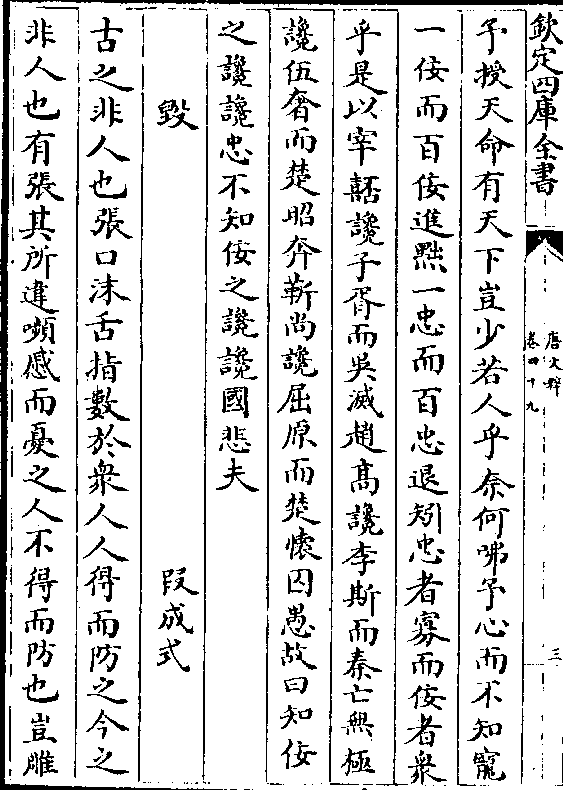 欽定四庫全書
唐文粹
卷四十九
三
予授天命有天下豈少若人乎奈何咈予心而不知寵
一佞而百佞進黜一忠而百忠退矧忠者寡而佞者衆
乎是以宰嚭讒子胥而吳滅趙高讒李斯而秦亡無極
讒伍奢而楚昭奔靳尚讒屈原而楚懷囚愚故曰知佞
之讒讒忠不知佞之讒讒國悲夫
毀
段成式
古之非人也張口沫舌指數於衆人人得而防之今之
非人也有張其所違嚬慼而憂之人不得而防也豈雕